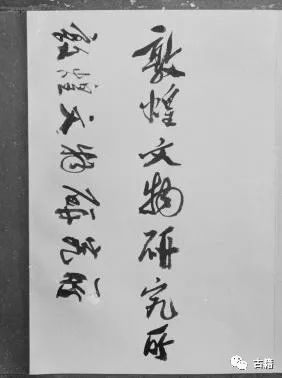 敦煌文物研究所
敦煌文物研究所
古籍